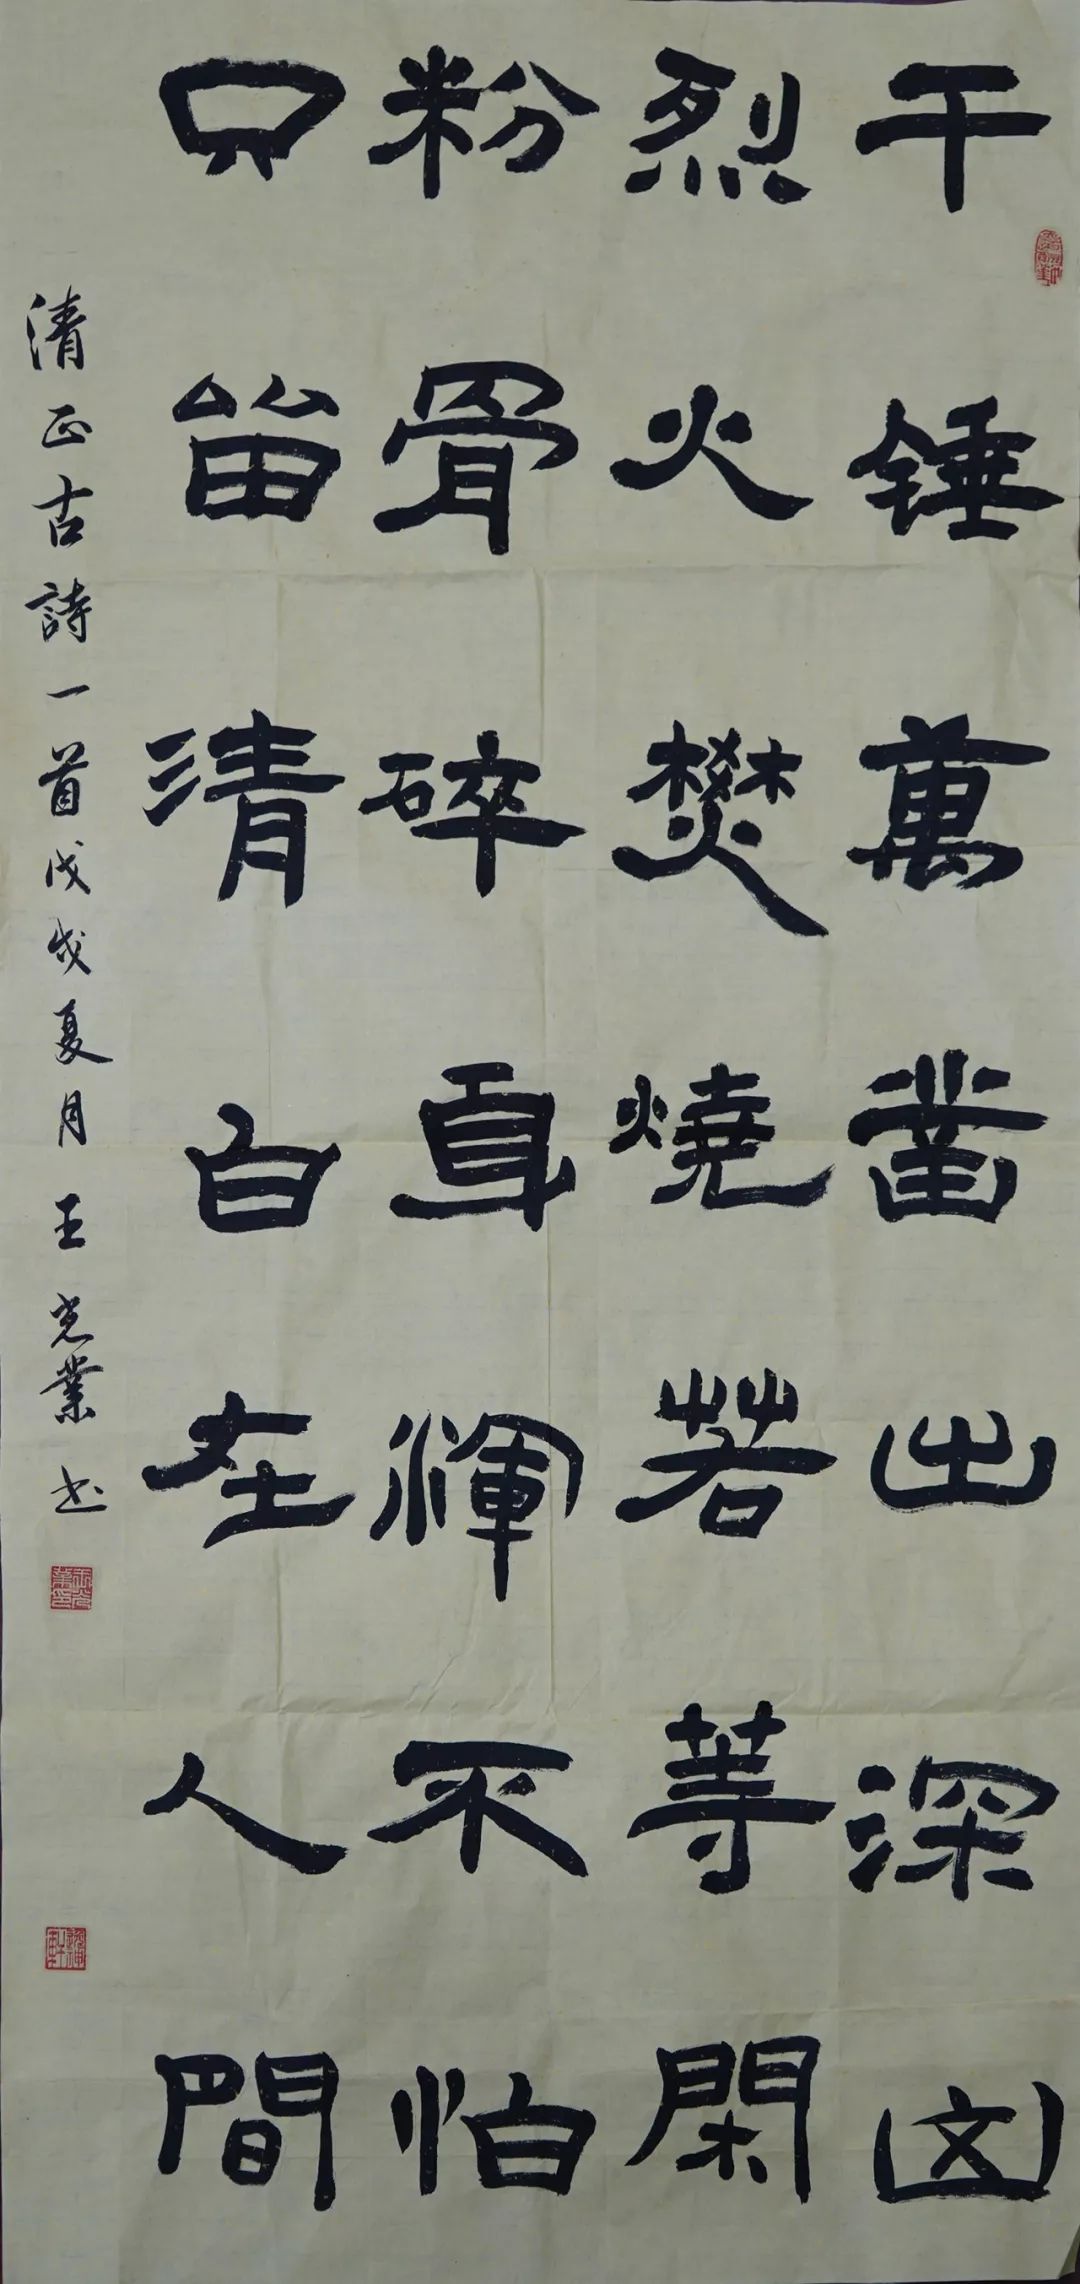 千锤萬凿出深
烈火燓燒若等閑
粉骨碎身渾不怕
只留清白在人間
清正古詩一首戊戌夏月王光業书